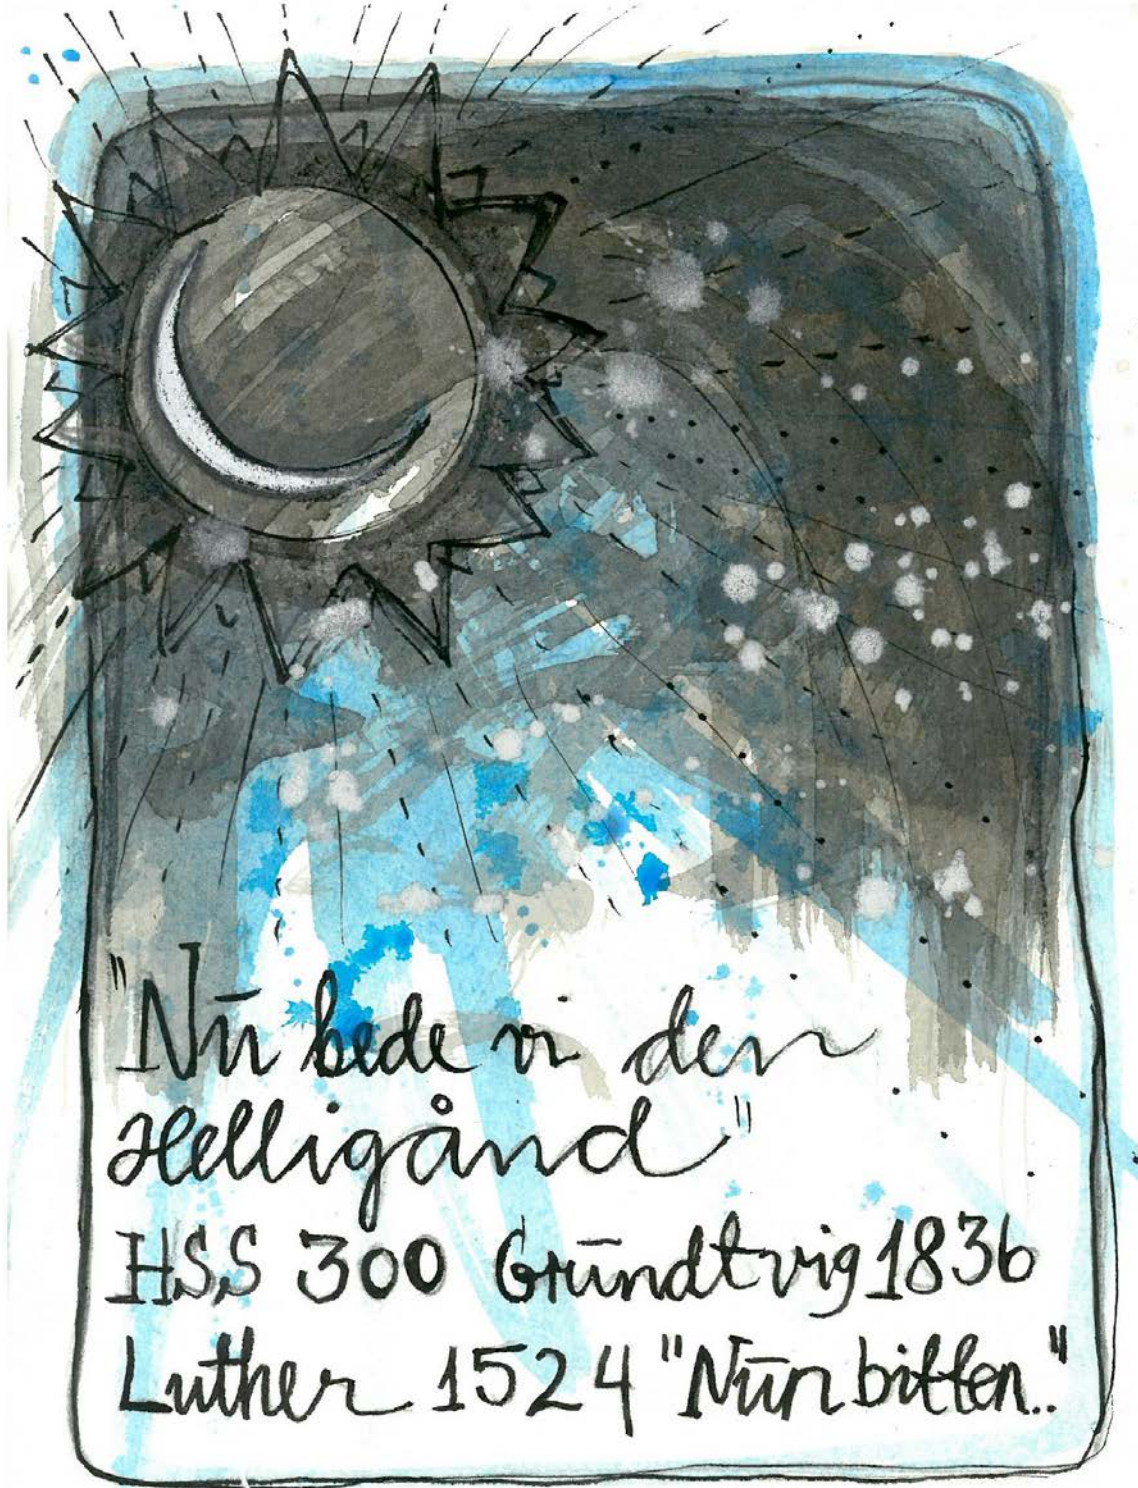 "Nū bede vi den
Helligånd"
HSS 300 Grūndtvig 1836
Luther 1524 "Nūn bitten.."